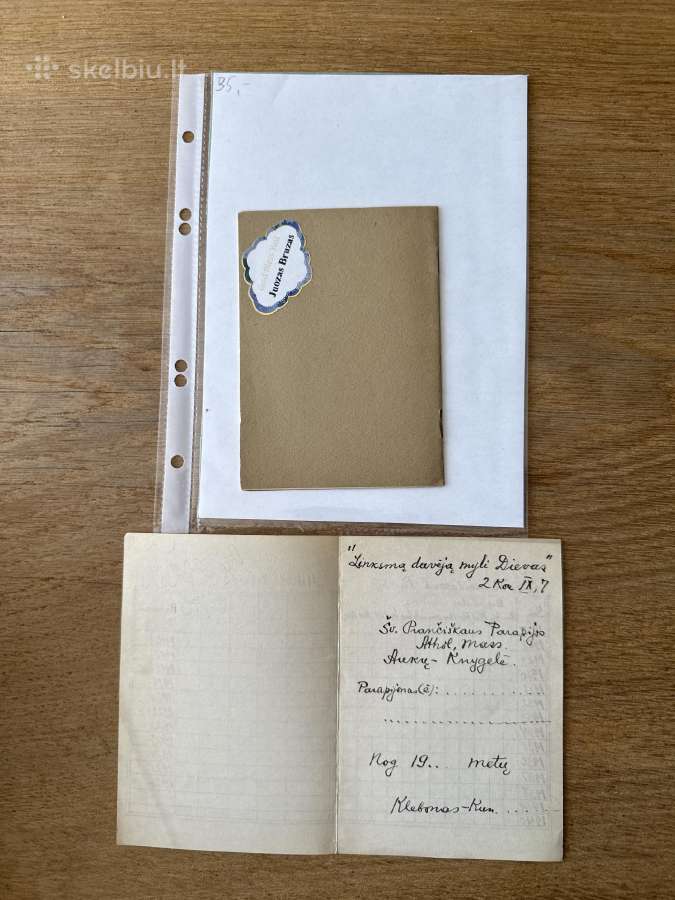 skelbiu.lt
35,-
Juozas Bruzas
"Linksmą davėją myli Dievas"
2 Kor IX, 7
Šv. Prančiškaus Parapijos
Athol, Mass.
Aukų - Knygelė.
Parapijonas(ė): . . . . . . . . .
. . . . . . . . . . . . . . . . . . .
Nog 19.. metų
Klebonas-Kun. . . . .